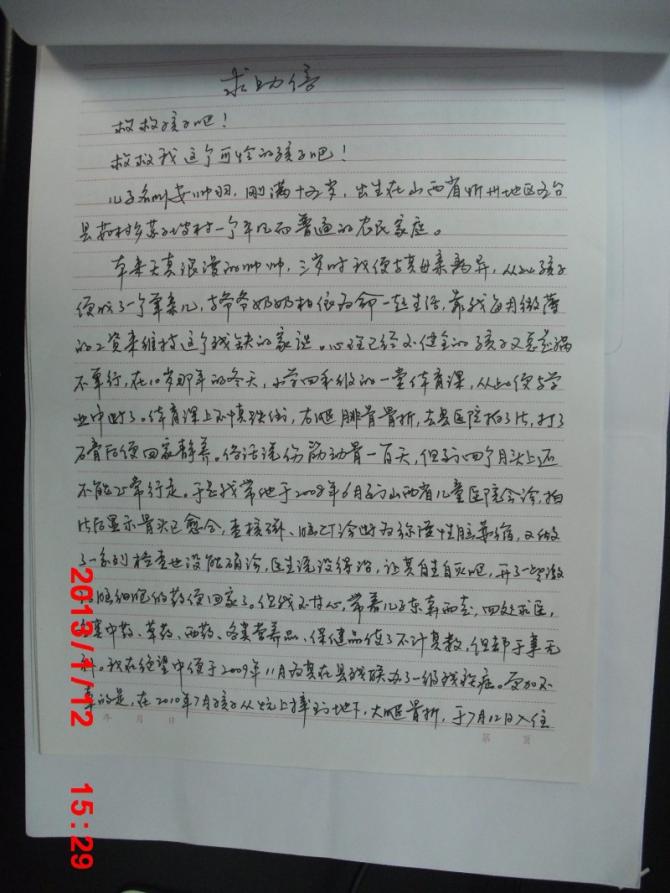 求助信
救救孩子吧！
救救我这个可怜的孩子吧！
儿子名叫安帅羽，刚满十五岁，出生在山西省忻州地区五台
县茹村乡苏子坡村一个平凡而普通的农民家庭。
本来天真浪漫的帅帅，三岁时我便与其母亲离异，从此孩子
便成了一个单亲儿，与爷爷奶奶相依为命一起生活，靠我每月微薄
的工资来维持这个残缺的家庭。心理已经不健全的孩子又惹祸
不单行，在10岁那年的冬天，小学四年级的一堂体育课，从此便与学
业中断了。体育课上不慎跌倒，右腿腓骨骨折，去县医院拍了片，打了
石膏后便回家静养。俗话说伤筋动骨一百天，但到四个月头上还
不能正常行走。于是我带他于2008年6月到山西省儿童医院会诊，拍
片后显示骨头已愈合，查核磁、脑CT诊断为弥漫性脑萎缩，又做
了一系列检查也没能确诊，医生说没得治，让其自生自灭吧，开了一些激
活脑细胞的药便回家了。但我不甘心，带着儿子东奔西走，四处求医，
中药、草药、西药、各类营养品、保健品使了不计其数，但都于事无
补。我在绝望中便于2009年11月为其在县残联办了一级残疾症。更加不
幸的是，在2010年7月孩子从炕上摔到地下，大腿骨折，于7月12日入住
年 月 日
第 页
2013/1/12 15:29